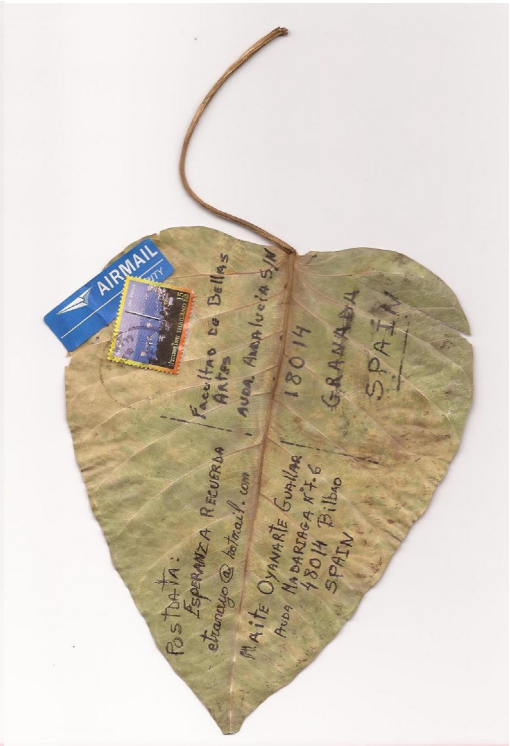 AIRMAIL
Facultad De Bellas
Artes
AVDA ANDALUCIA S/N
18014
GRANADA
SPAIN
POSTDATA:
ESPERANZA RECUERDA
etranayo@hotmail.com
MAITE OYANARTE GUALLAR
AVDA MADARIAGA Nº7-6
48014 Bilbao
SPAIN